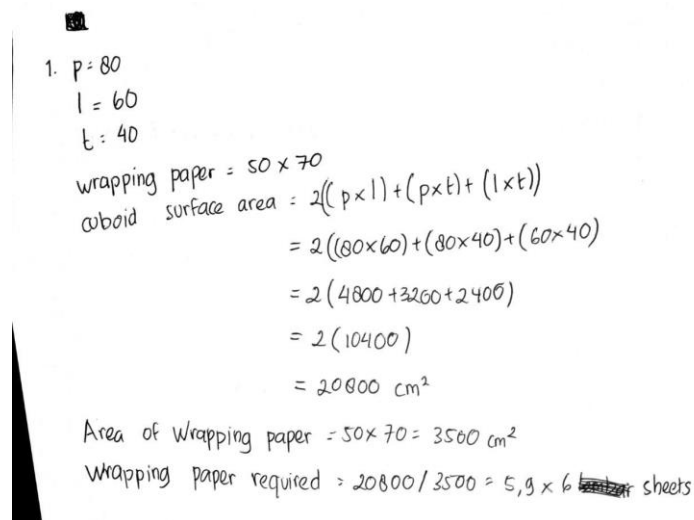 1. p = 80
l = 60
t = 40
wrapping paper = 50 x 70
cuboid surface area = 2((p x l) + (p x t) + (l x t))
= 2((80 x 60) + (80 x 40) + (60 x 40)
= 2(4800 + 3200 + 2400)
= 2(10400)
= 20800 cm²
Area of Wrapping paper = 50 x 70 = 3500 cm²
Wrapping paper required = 20800 / 3500 = 5,9 x 6 sheets